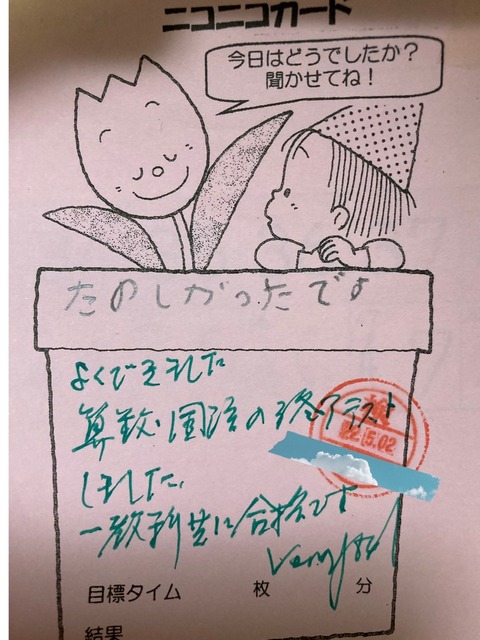 ニコニコカード
今日はどうでしたか？
聞かせてね！
たのしかったです
よくできました
算数・国語の終了テスト
22.5.02
しました
一教科共に合格です
Very
目標タイム 枚 分
結果